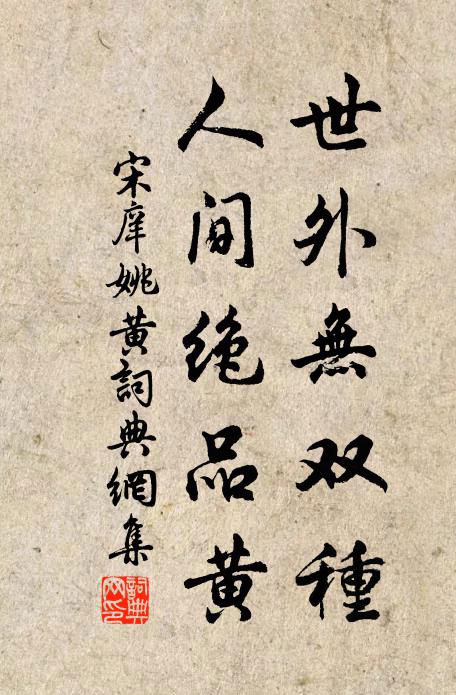 世外無双種
人间绝品黄
宋庠姚黄詞典網集
詞典网印